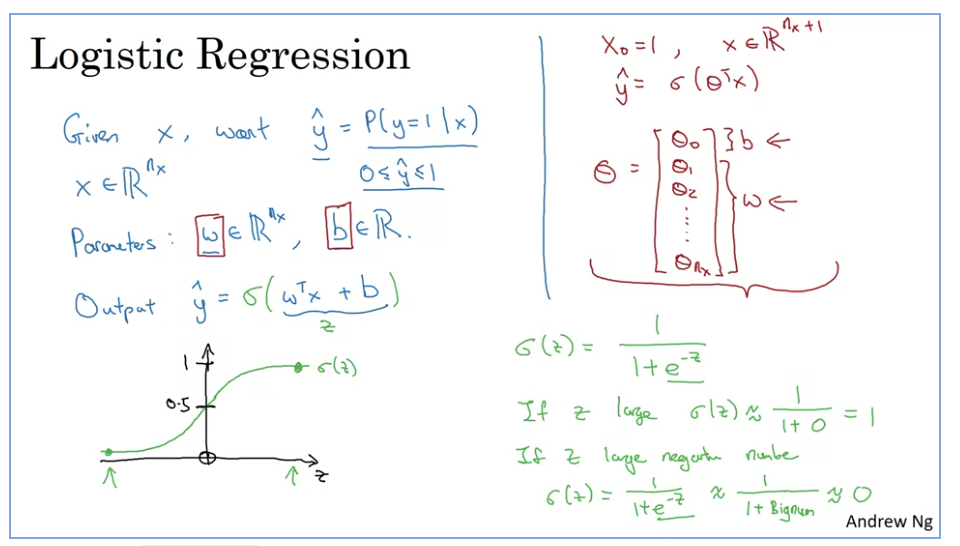 Logistic Regression
Given x, want ŷ = P(y=1|x)
x ∈ ℝ^{n_x}
0 ≤ ŷ ≤ 1
Parameters: w ∈ ℝ^{n_x}, b ∈ ℝ.
Output ŷ = σ(wᵀx + b)
z
1
σ(z)
0.5
z
X₀ = 1, x ∈ ℝ^{n_x+1}
ŷ = σ(θᵀx)
θ = [θ₀ θ₁ θ₂ ⋮ θ_{n_x}]
} b ←
} w ←
σ(z) = 1 / (1 + e^{-z})
If z large σ(z) ≈ 1 / (1 + 0) = 1
If z large negative numbe
σ(z) = 1 / (1 + e^{-z}) ≈ 1 / (1 + Bignum) ≈ 0
Andrew Ng